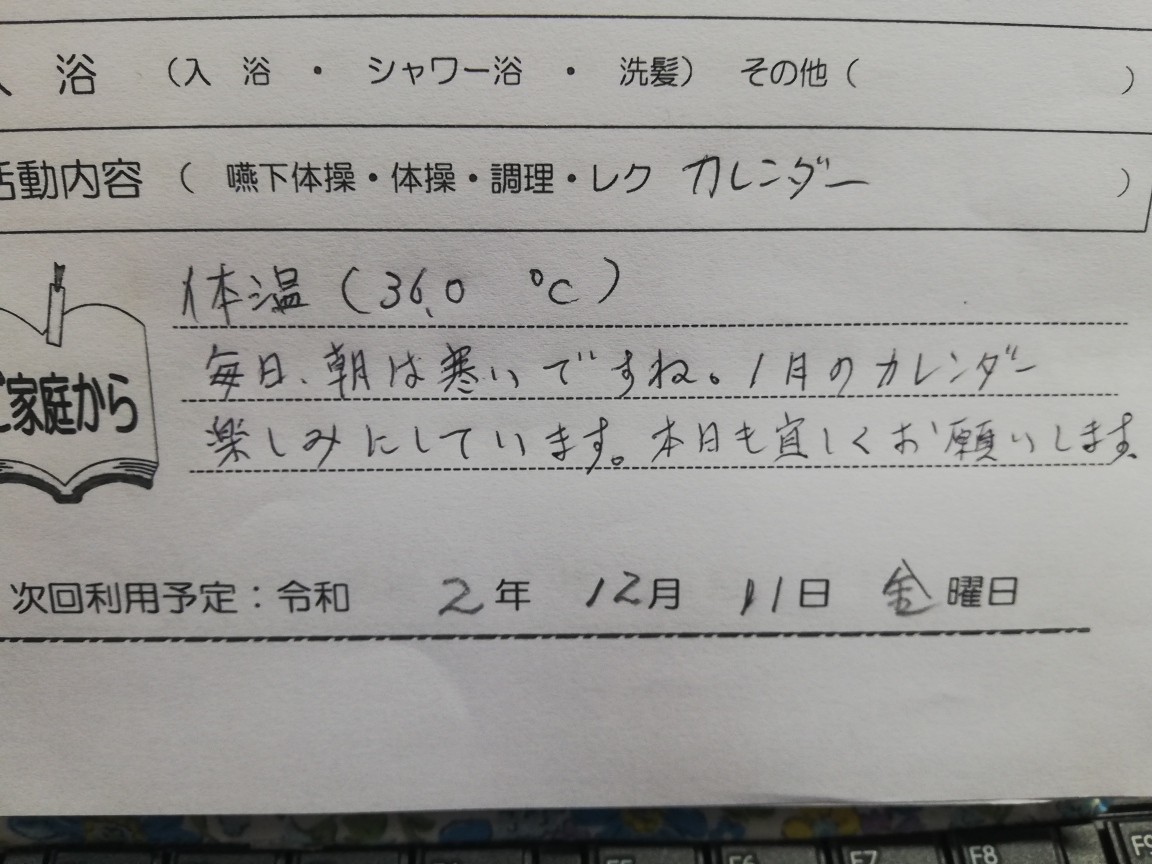 入 浴 (入 浴 ・ シャワー浴 ・ 洗髪) その他 ( )
活動内容 ( 嚥下体操・体操・調理・レク カレンダー )
体温 (36.0 ℃)
毎日、朝は寒いですね。1月のカレンダー
ご家庭から
楽しみにしています。本日も宜しくお願いします。
次回利用予定:令和 2年 12月 11日 金曜日
F5 F6 F7 F8 F9